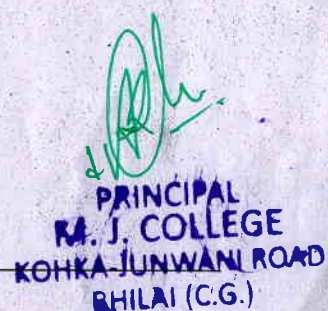 PRINCIPAL
M. J. COLLEGE
KOHKA-JUNWANI ROAD
BHILAI (C.G.)